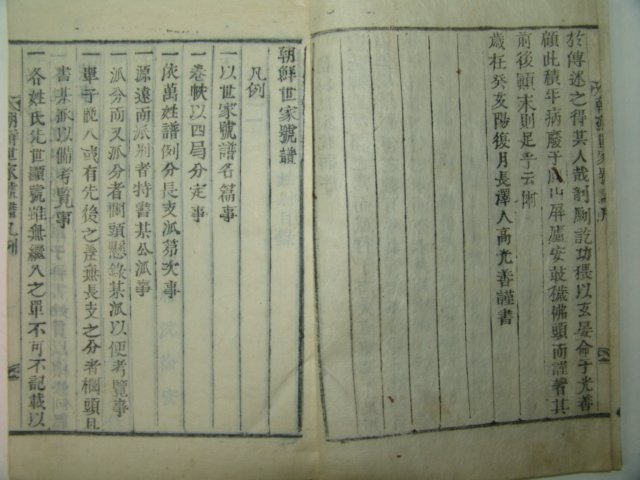 於傳述之得其人哉剞劂訖功猥以玄晏命于光善
顧此積年病廢于山屛處安敢穢佛頭而謹書其
前後顚末則足乎云爾
歲在癸亥陽復月長澤人高光善謹書
朝鮮世家號譜
凡例
一以世家號譜名篇事
一卷帙以四局分定事
一依萬姓譜例分長支派第次事
一源遠而派別者特書某公派事
一派分而又派分者欄頭懸錄某派以便考覽事
一單子晩入或有先後之差無長支之分者欄頭且
書某派以備考覽事
一各姓氏先世顯號雖無繼入之單不可不記載以
朝鮮世家號譜凡例